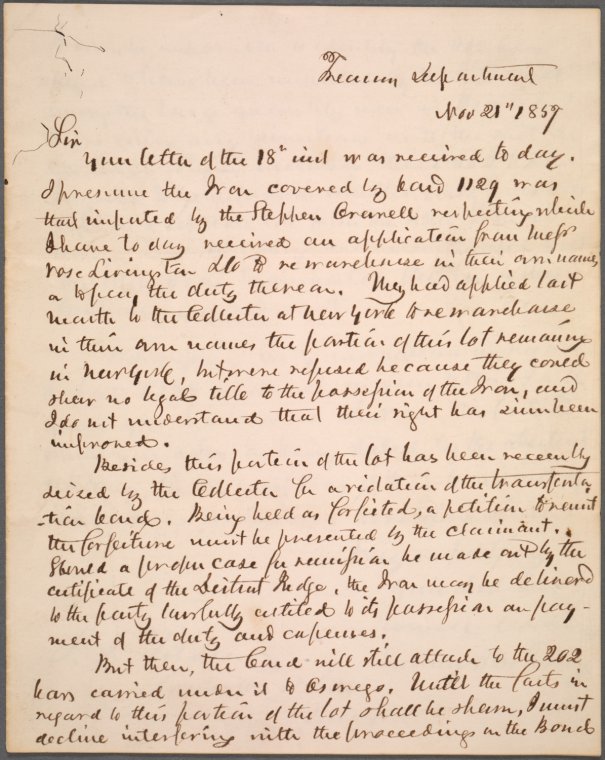 Treasury Department
Nov 21st 1857
Sir
Your letter of the 18th inst was received to day.
I presume the Iron covered by bond 1129 was
that imported by the Stephen Crowell respecting which
I have to day received an application from Messrs
rose Livingston & Co to rewarehouse in their own names
or to pay the duty thereon. They had applied last
month to the Collector at New York to rewarehouse
in their own names the portion of this lot remaining
in New York, but were refused because they could
shew no legal title to the possession of the Iron, and
I do not understand that their right has since been
improved.
Besides this portion of the lot has been recently
seized by the Collector for a violation of the transporta
-tion bond. Being held as forfeited, a petition to remit
the forfeiture must be presented by the claimant.
Should a proper case for remission be made out by the
certificate of the District Judge, the Iron may be delivered
to the party lawfully entitled to its possession on pay-
ment of the duty and expenses.
But then, the bond will still attach to the 202
bars carried under it to Oswego. Until the facts in
regard to this portion of the lot shall be shewn, I must
decline interfering with the proceedings on the Bond